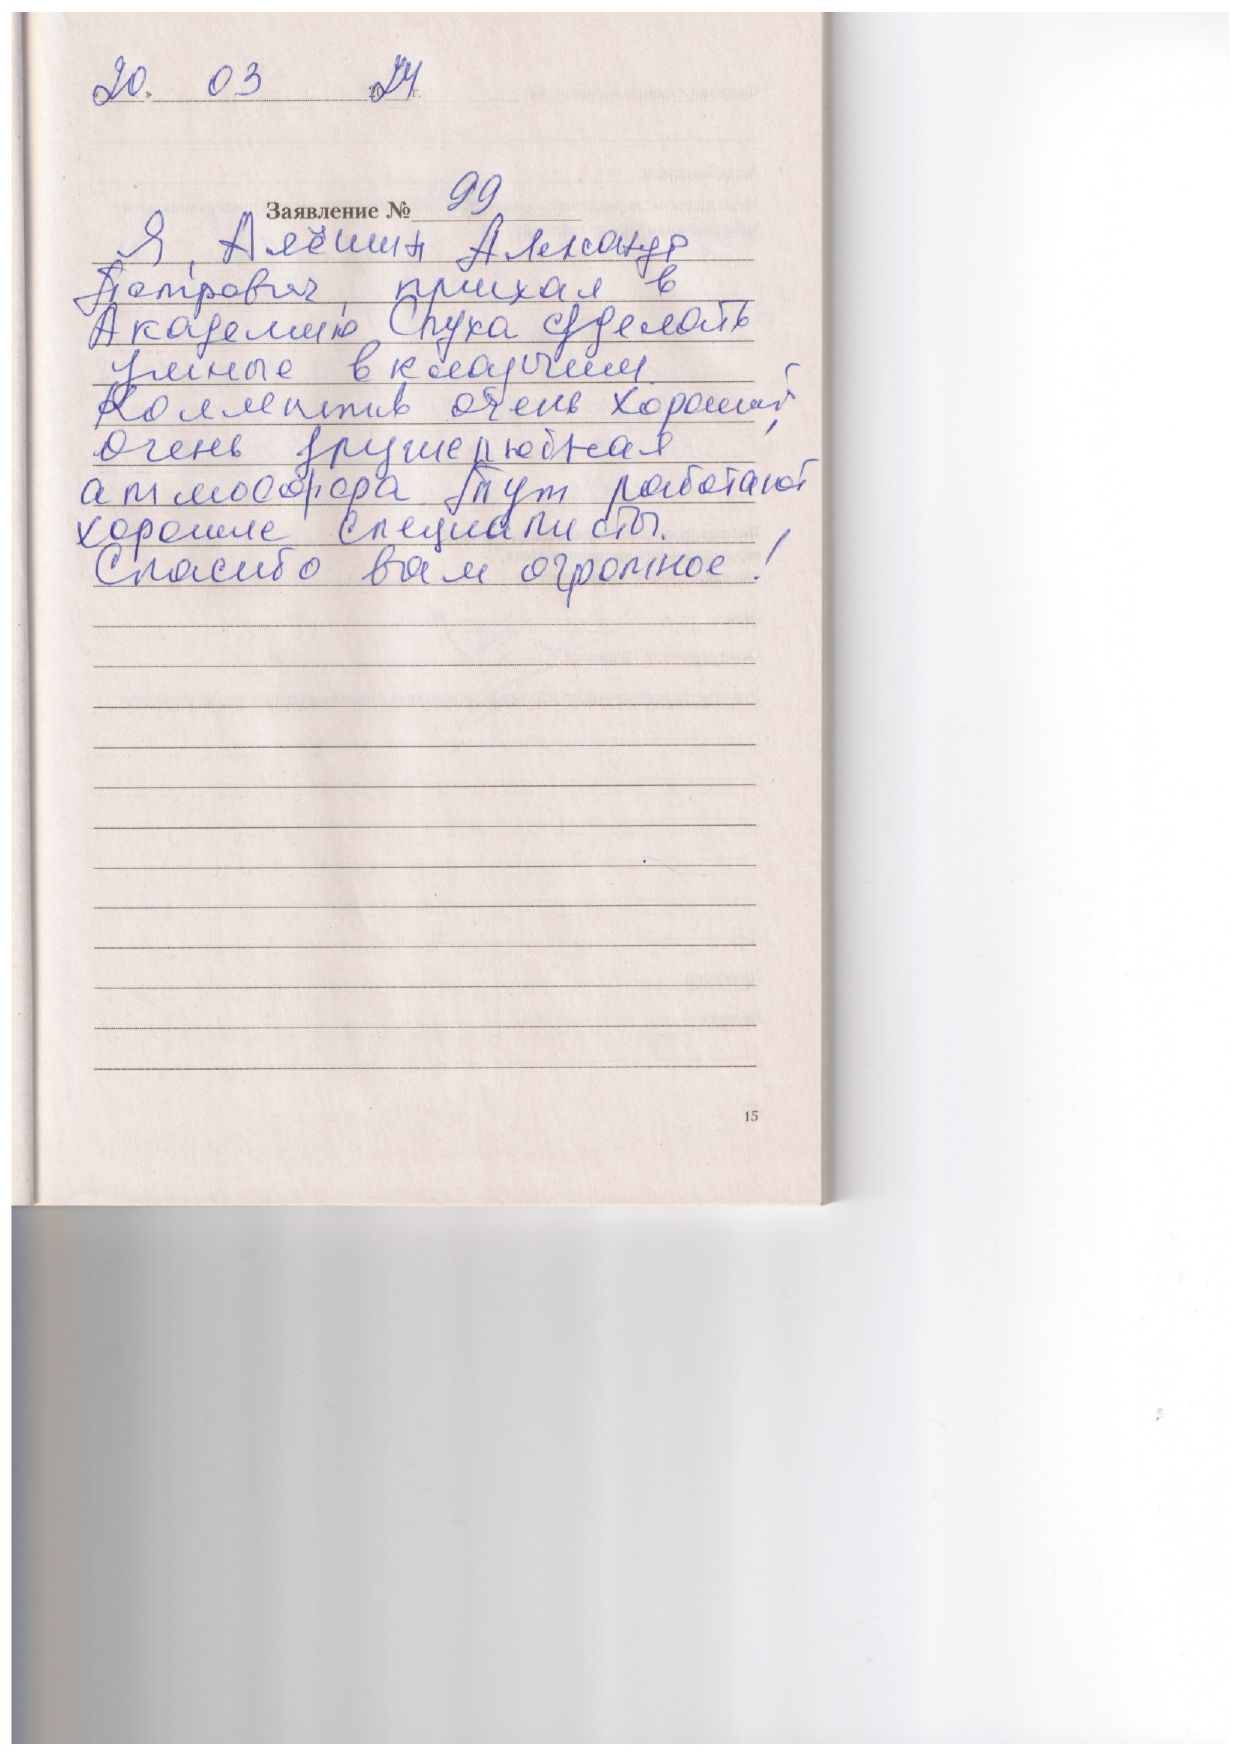 20. 03 2024 г.
Заявление № 99
Я, Алёшин Александр
Петрович, приехал в
Академию Слуха сделать
умные вкладыши.
Коллектив очень хороший,
очень дружелюбная
атмосфера тут работают
хорошие специалисты.
Спасибо вам огромное!
15